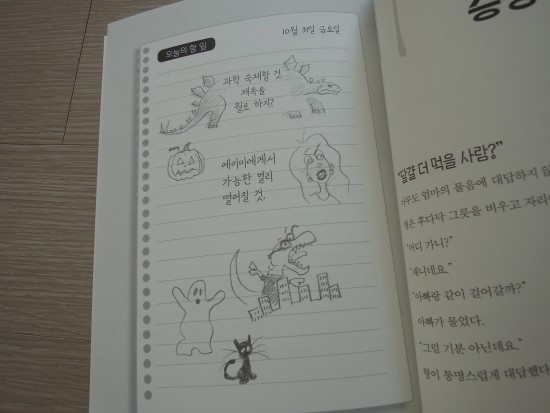 오늘의 할 일
10월 31일 금요일
과학 숙제할 것
제목을
뭘로 하지?
에이미에게서
가능한 멀리
떨어질 것.
달걀 더 먹을 사람?"
엄마의 물음에 대답하지 않
후다닥 그릇을 비우고 자리
"어디 가니?"
"아빠랑 같이 걸어갈까?"
아빠가 물었다.
"그럴 기분 아닌데요."
퉁명스럽게 대답했다